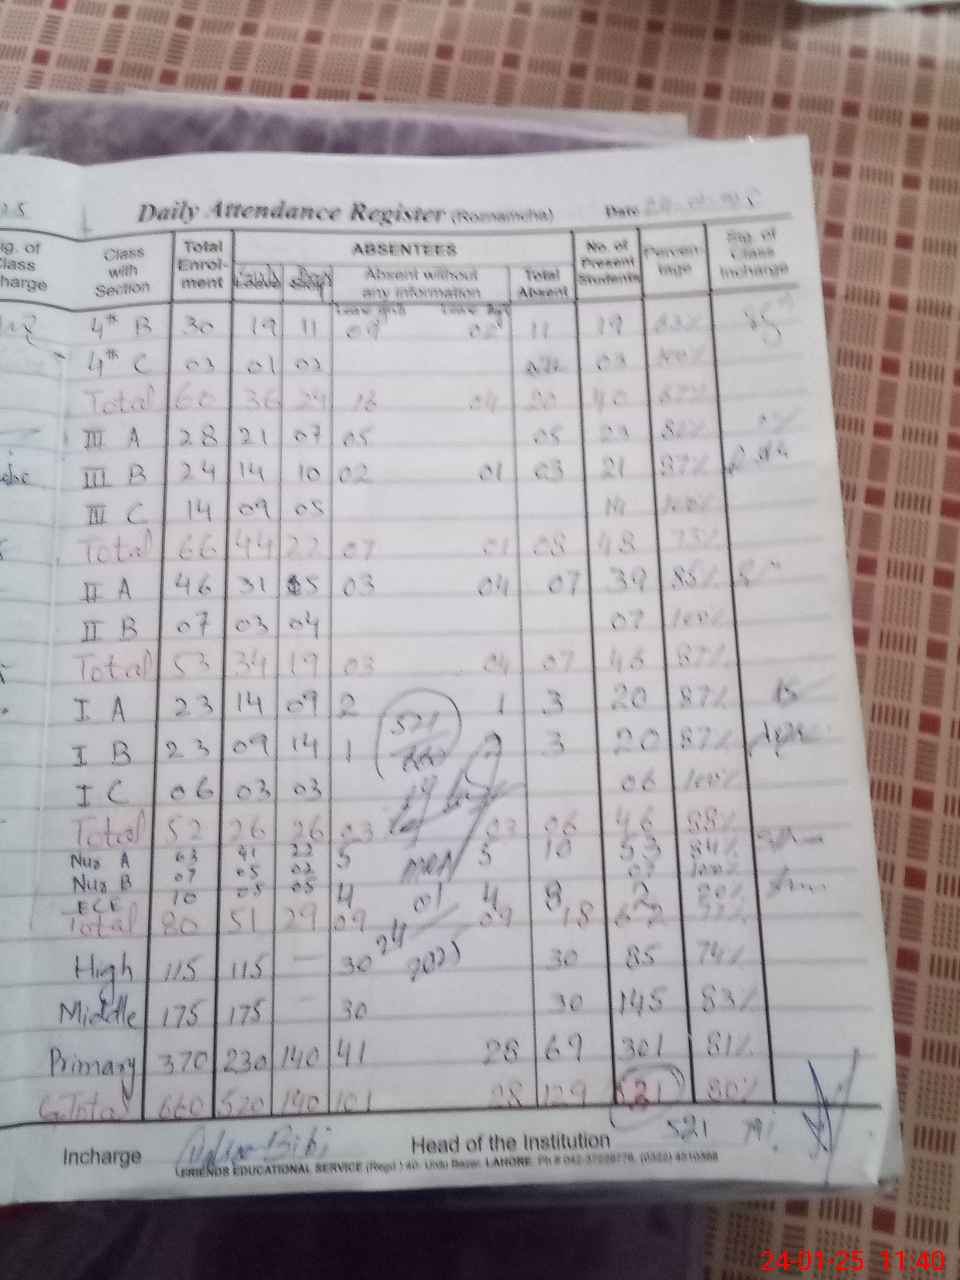 Daily Attendance Register (Roznamcha) Date
ig. of Class with Section Total Enrol-ment ABSENTEES No. of Present Students Percen-tage Sig. of Class Incharge
lass
harge
Absent without any information Total Absent
4th B 30 19 11 09 02 11 19 63%
4th C 03 01 02 03 100%
Total 60 36 24 16 04 20 40 67%
III A 28 21 07 05 05 23 82%
III B 24 14 10 02 01 03 21 87%
III C 14 09 05 14 100%
Total 66 44 22 07 01 08 48 73%
II A 46 31 15 03 04 07 39 85%
II B 07 03 04 07 100%
Total 53 34 19 03 04 07 46 87%
I A 23 14 09 2 1 3 20 87%
I B 23 09 14 1 2 3 20 87%
I C 06 03 03 06 100%
Total 52 26 26 03 03 06 46 88%
Nur A 63 41 22 5 5 10 53 84%
Nur B 07 05 02 07 100%
ECE 10 05 05 4 4 8 2 20%
Total 80 51 29 09 09 18 62
High 115 115 — 30 30 85 74%
Middle 175 175 — 30 30 145 83%
Primary 370 230 140 41 28 69 301 81%
G.Total 660 520 140 101 28 129 521 80%
521
660
24 01 2025
521 79%
Incharge Bibi Head of the Institution
FRIENDS EDUCATIONAL SERVICE (Regd.) 40- Urdu Bazar, LAHORE.
24-01-25 11:40